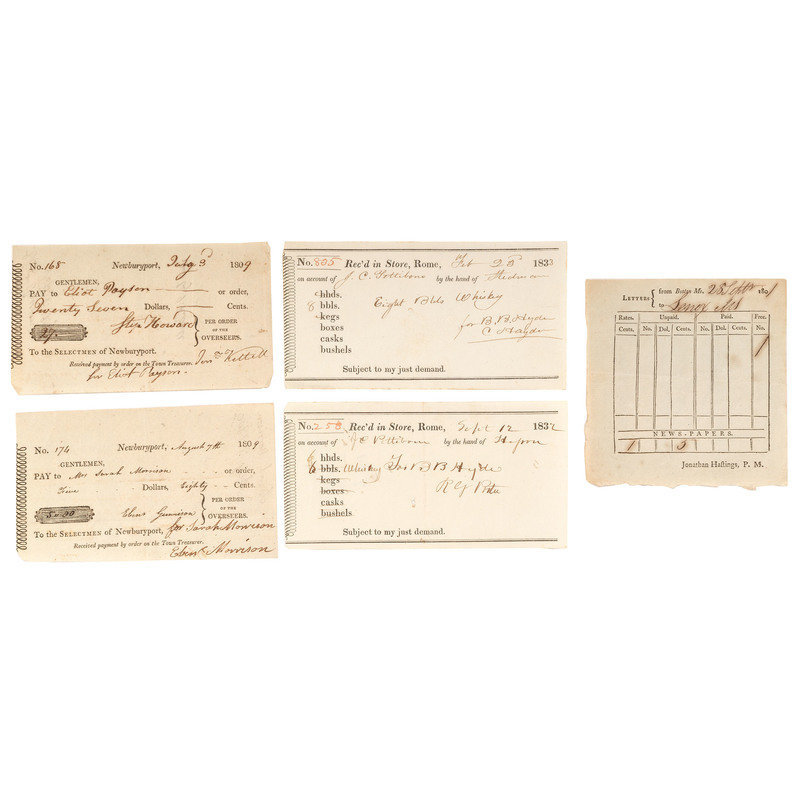 No. 168 Newburyport, July 3d 1809
GENTLEMEN,
PAY to Eliot Payson or order,
Twenty Seven Dollars, Cents.
27 PER ORDER
OF THE
OVERSEERS.
To the SELECTMEN of Newburyport.
Received payment by order on the Town Treasurer.
for Eliot Payson.
No. 174 Newburyport, August 7th 1809
GENTLEMEN,
PAY to Mrs Sarah Morrison or order,
Dollars, Eighty Cents.
PER ORDER
OF THE
OVERSEERS.
To the SELECTMEN of Newburyport, for Sarah Morrison
Received payment by order on the Town Treasurer.
Morrison
No. 805 Rec'd in Store, Rome, Feb 1833
on account of J. C. by the hand of
hhds.
8 bbls. Eight Bbls Whisky
kegs for B. B. Hyde
boxes
casks
bushels
Subject to my just demand.
No. 258 Rec'd in Store, Rome, Sept 12 1832
on account of by the hand of
hhds.
6 bbls. Whisky For B B Hyde
kegs
boxes
casks
bushels
Subject to my just demand.
LETTERS from
to
Rates. Unpaid. Paid. Free.
Cents. No. Dol. Cents. No. Dol. Cents. No.
1
NEWS-PAPERS.
1 3
Jonathan Hastings, P. M.